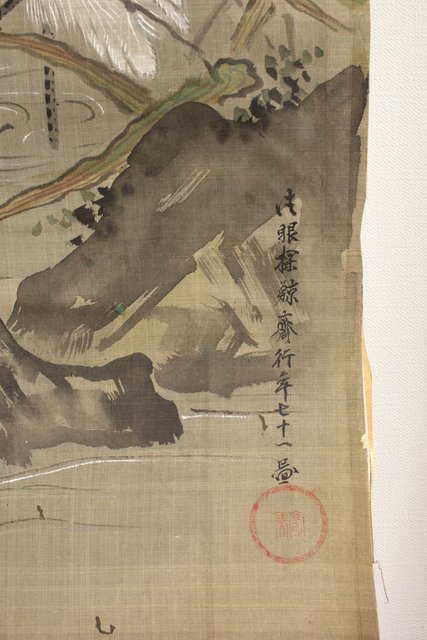 法眼探鯨齋行年七十一啚